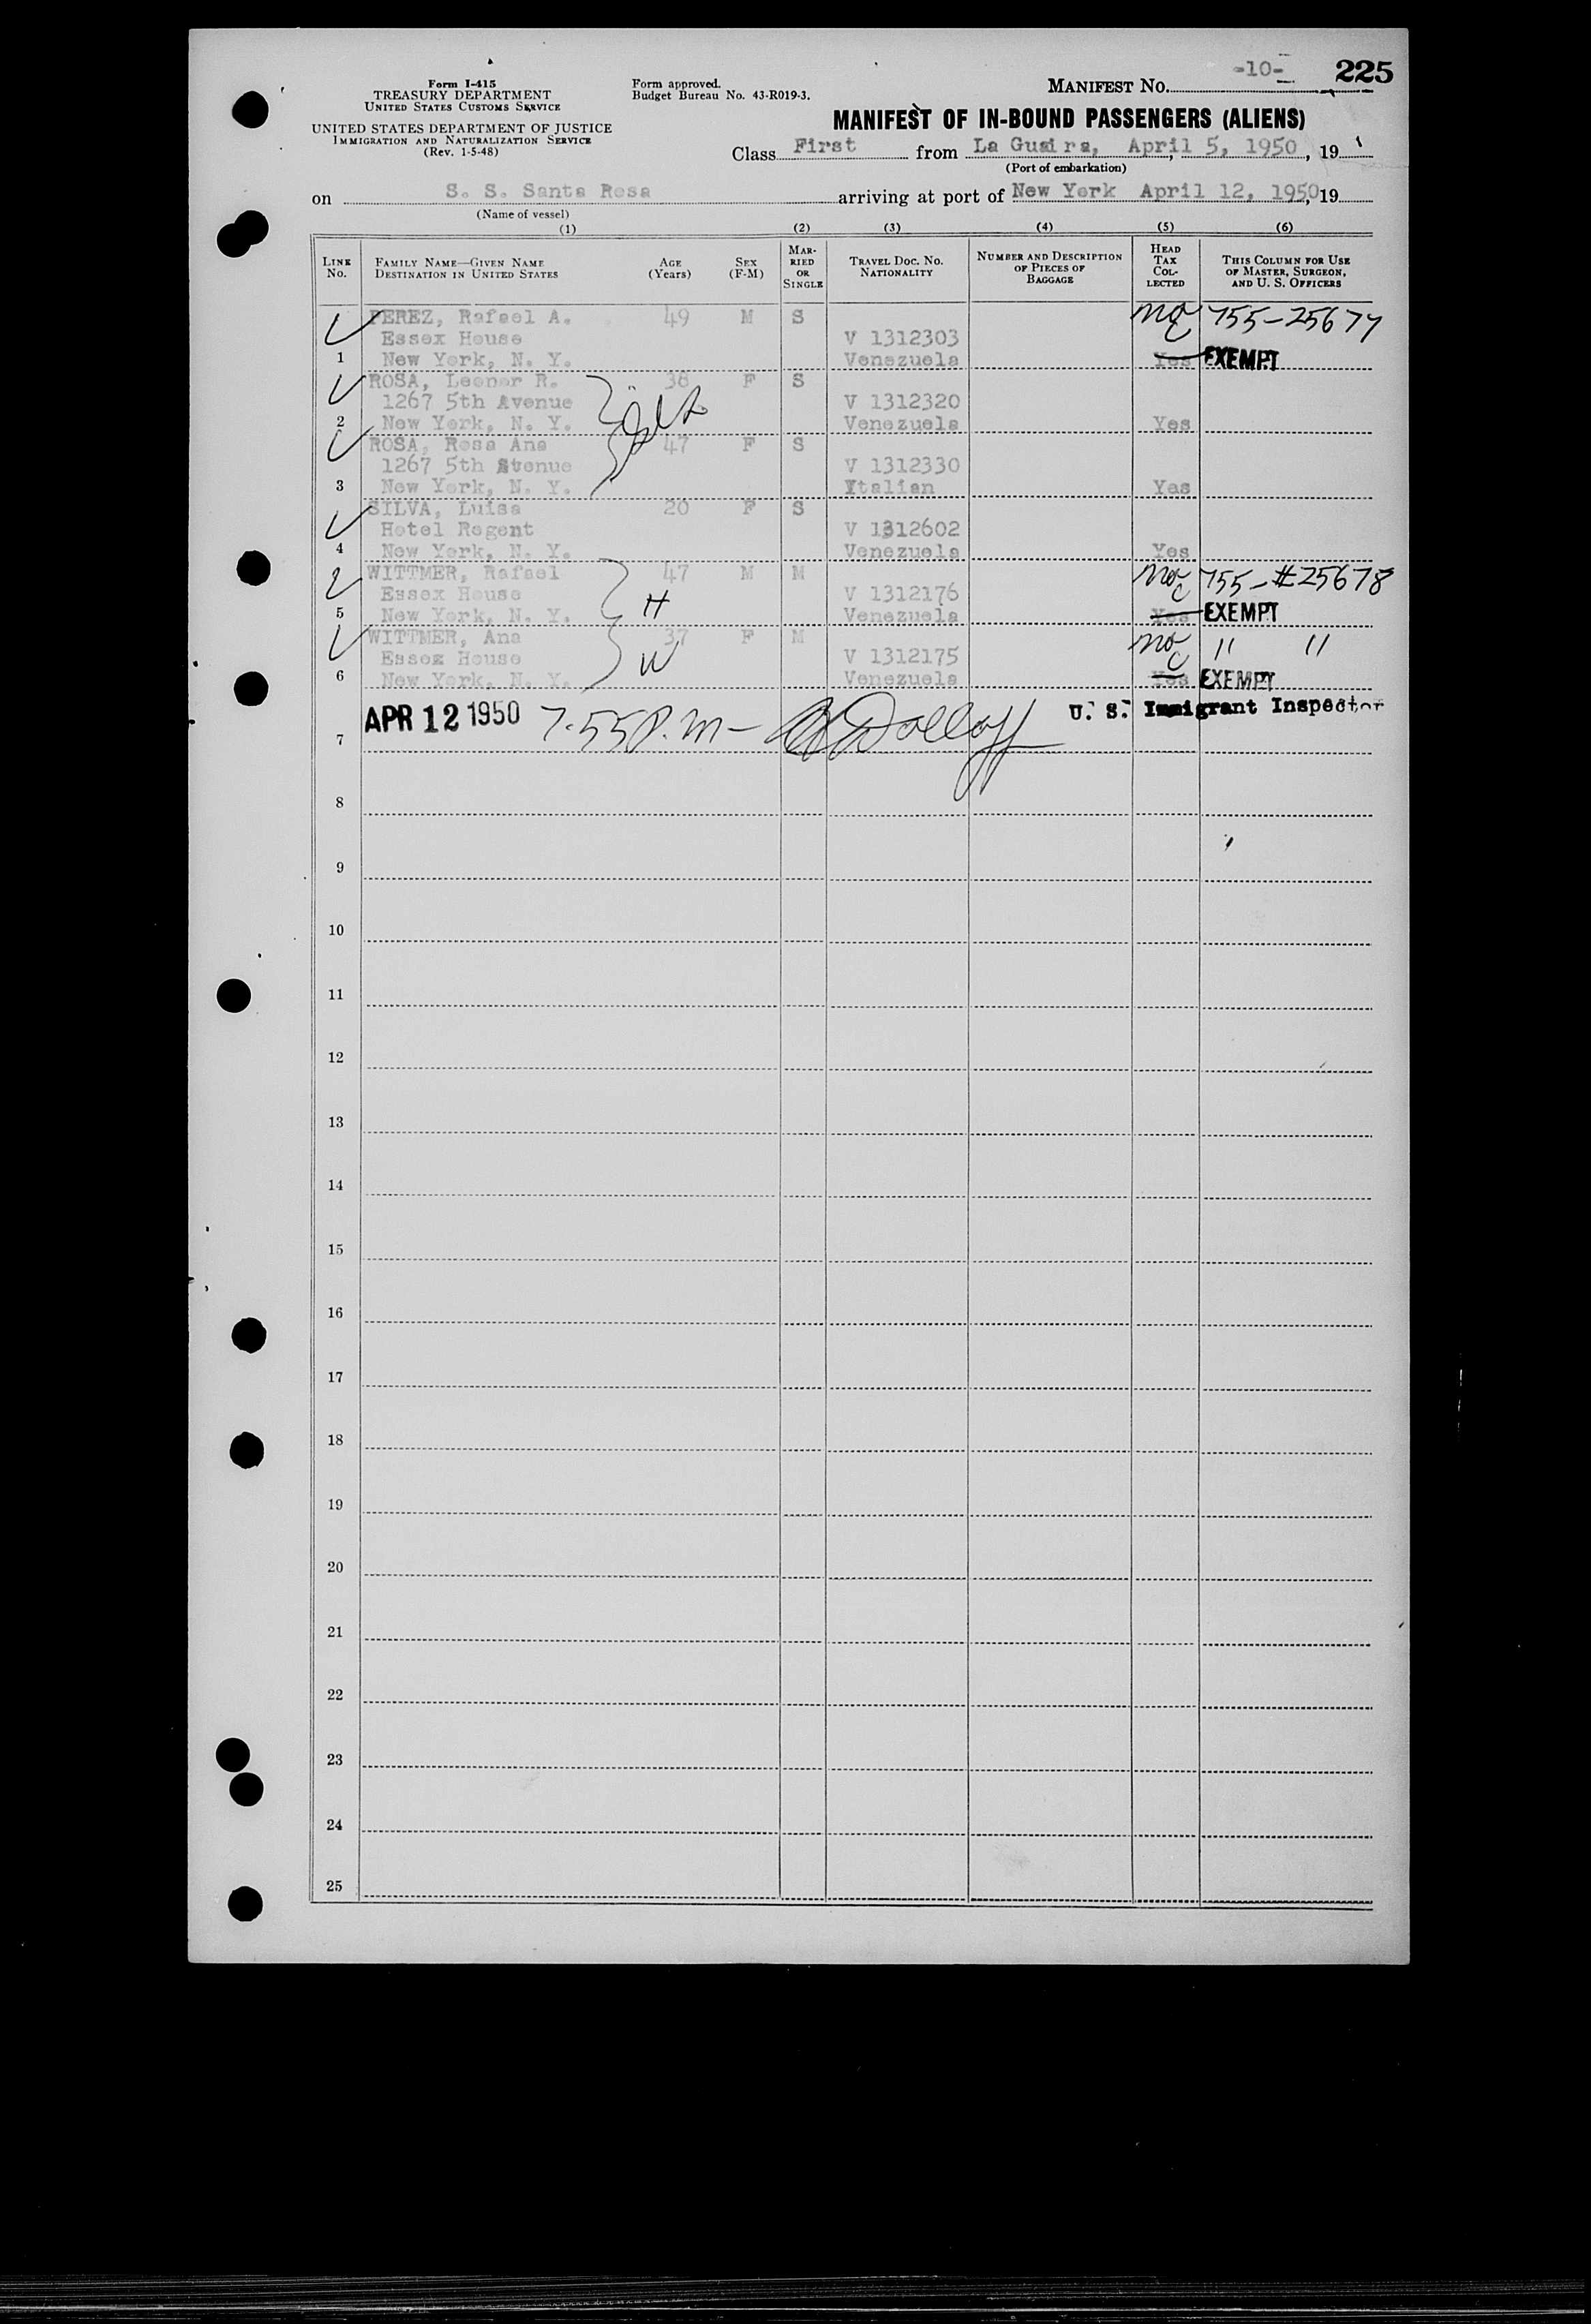 Form I-415
TREASURY DEPARTMENT
UNITED STATES CUSTOMS SERVICE
UNITED STATES DEPARTMENT OF JUSTICE
IMMIGRATION AND NATURALIZATION SERVICE
(Rev. 1-5-48)
Form approved.
Budget Bureau No. 43-R019-3.
MANIFEST No. -10- 225
MANIFEST OF IN-BOUND PASSENGERS (ALIENS)
Class First from La Guaira, April 5, 1950, 19
(Port of embarkation)
on S. S. Santa Rosa arriving at port of New York April 12, 1950, 19
(Name of vessel)
(1) (2) (3) (4) (5) (6)
LINE No.
FAMILY NAME—GIVEN NAME
DESTINATION IN UNITED STATES
AGE (Years)
SEX (F-M)
MARRIED OR SINGLE
TRAVEL DOC. NO.
NATIONALITY
NUMBER AND DESCRIPTION OF PIECES OF BAGGAGE
HEAD TAX COLLECTED
THIS COLUMN FOR USE OF MASTER, SURGEON, AND U. S. OFFICERS
PEREZ, Rafael A. 49 M S 755-25677
Essex House V 1312303
1 New York, N. Y. Venezuela Yes EXEMPT
ROSA, Leonor R. 38 F S
1267 5th Avenue V 1312320
2 New York, N. Y. Venezuela Yes
ROSA, Rosa Ana 47 F S
1267 5th Atenue V 1312330
3 New York, N. Y. Italian Yes
SILVA, Luisa 20 F S
Hotel Regent V 1312602
4 New York, N. Y. Venezuela Yes
WITTMER, Rafael 47 M M 755-#25678
Essex House H V 1312176
5 New York, N. Y. Venezuela Yes EXEMPT
WITTMER, Ana 37 F M " "
Essex House W V 1312175
6 New York, N. Y. Venezuela Yes EXEMPT
APR 12 1950 7.55 P.m - U. S. Immigrant Inspector
7
8
9
10
11
12
13
14
15
16
17
18
19
20
21
22
23
24
25